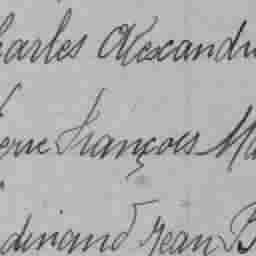 harles Alexandr
erre François Ma
dinand Jean B